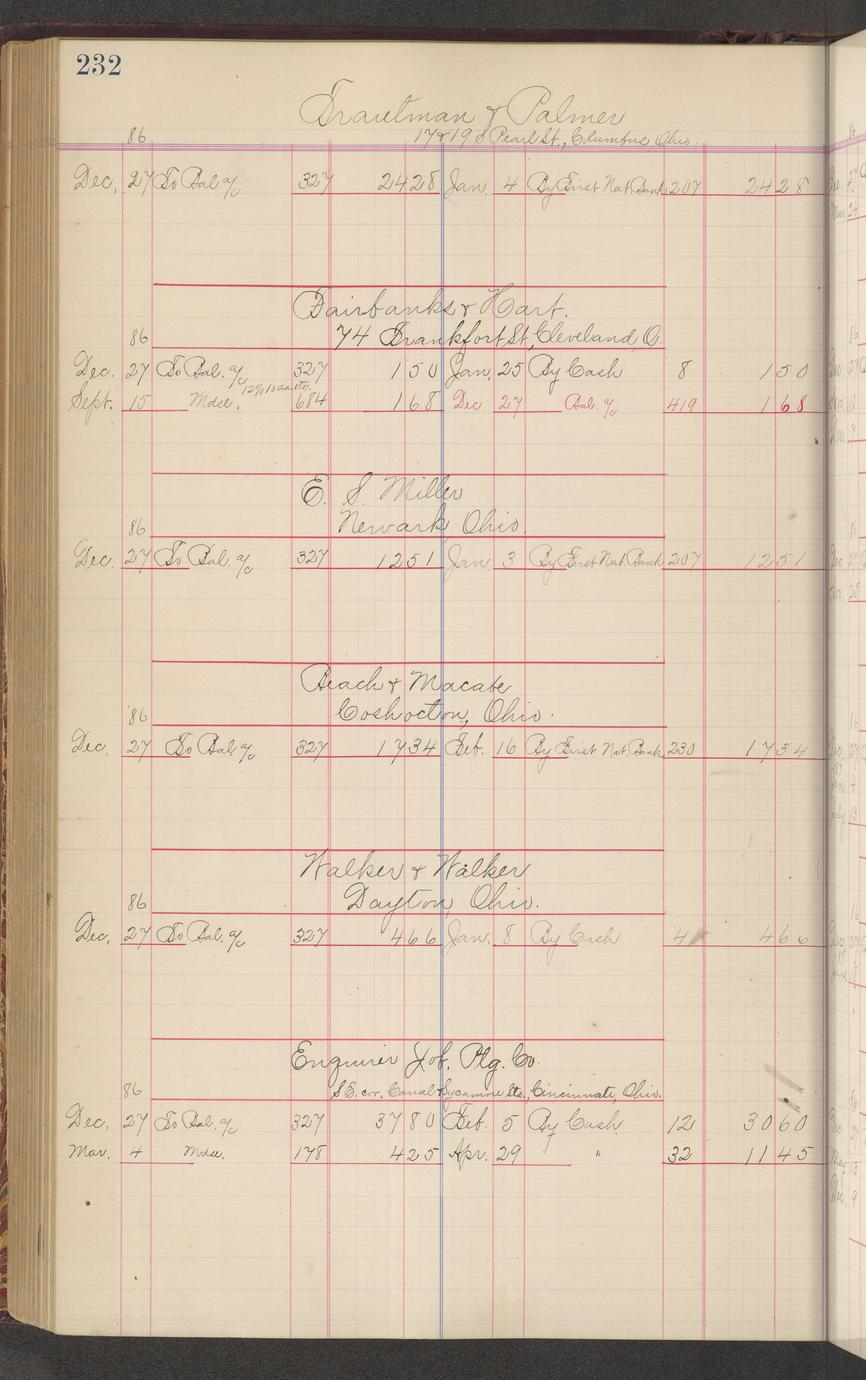 232
Trautman & Palmer
86 17 & 19 S Pearl St., Columbus Ohio.
Dec. 27 To Bal. a/c 327 2428 Jan. 4 By First Nat. Bank 207 2428
Fairbanks & Hart.
86 74 Frankfort St, Cleveland, O.
Dec. 27 To Bal. a/c 327 150 Jan. 25 By Cash 8 150
Sept. 15 Mdse. 684 168 Dec 27 Bal. a/c 419 168
E. S. Miller
86 Newark, Ohio.
Dec. 27 To Bal. a/c 327 1251 Jan 3 By First Nat. Bank 207 1251
Beach & Macabe
86 Coshocton, Ohio.
Dec. 27 To Bal. a/c 327 1734 Feb. 16 By First Nat. Bank 230 1734
Walker & Walker
86 Dayton, Ohio.
Dec. 27 To Bal. a/c 327 466 Jan. 8 By Cash 4 466
Enquirer Job. Ptg. Co.
86 S.E. cor. Canal & Sycamore Sts., Cincinnati, Ohio.
Dec. 27 To Bal. a/c 327 3780 Feb. 5 By Cash 12 3060
Mar. 4 Mdse. 178 425 Apr. 29 " 32 1145